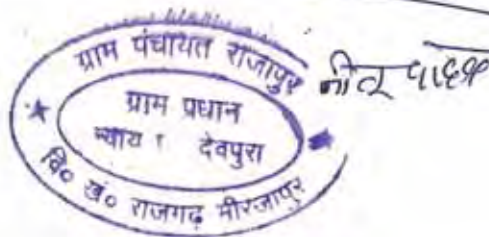 ग्राम पंचायत राजापुर
ग्राम प्रधान
देवपुरा
वि० खं० राजगढ़ मीरजापुर